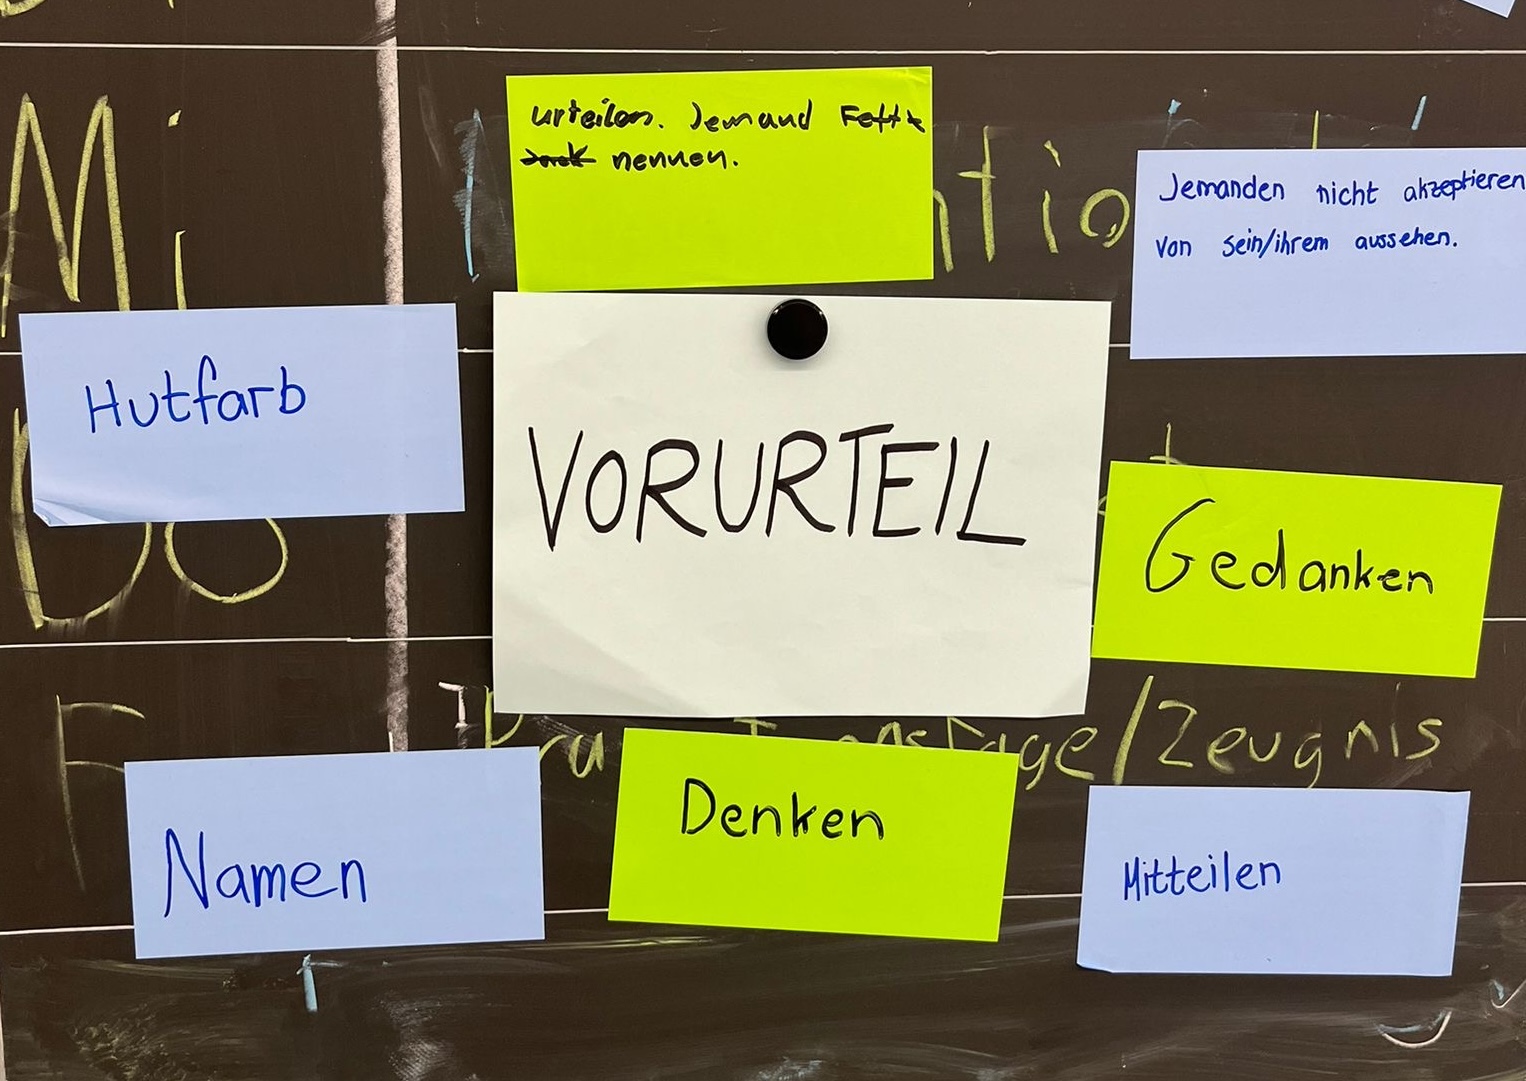 urteilen. Jemand Fette
nennen.
Jemanden nicht akzeptieren
von sein/ihrem aussehen.
Mi
Hutfarb
VORURTEIL
Gedanken
Do
F
/Zeugnis
Namen
Denken
Mitteilen